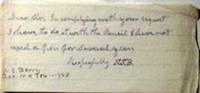 Dear Sir In complying with your request
I have to do it with the Pencil I have not
used a Pen for Several years
Respectfully